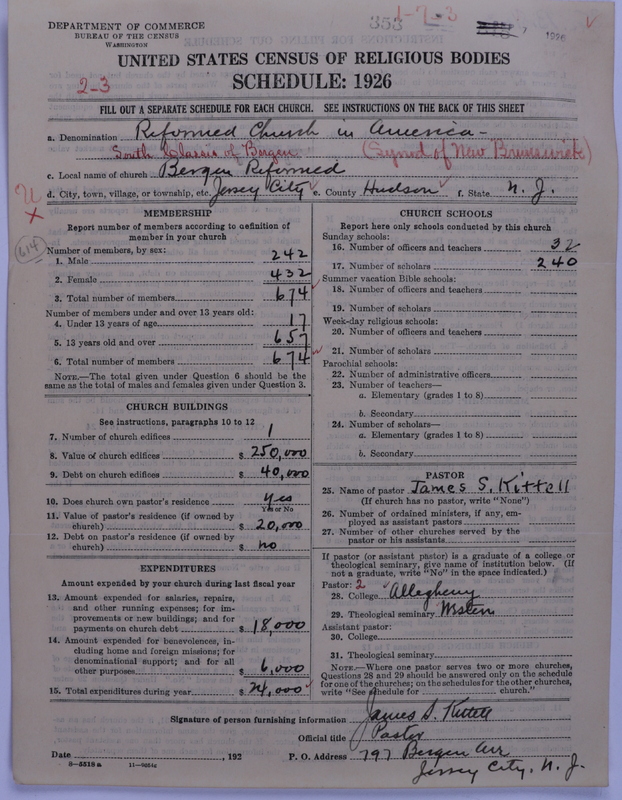 DEPARTMENT OF COMMERCE
BUREAU OF THE CENSUS
WASHINGTON
353
1-7-3
7 1926
UNITED STATES CENSUS OF RELIGIOUS BODIES
SCHEDULE: 1926
2-3
FILL OUT A SEPARATE SCHEDULE FOR EACH CHURCH. SEE INSTRUCTIONS ON THE BACK OF THIS SHEET
a. Denomination Reformed Church in America-
South Classis of Bergen (Synod of New Brunswick)
c. Local name of church Bergen Reformed
d. City, town, village, or township, etc. Jersey City e. County Hudson f. State N. J.
X
614
MEMBERSHIP
Report number of members according to definition of
member in your church
Number of members, by sex:
1. Male 242
2. Female 432
3. Total number of members 674
Number of members under and over 13 years old:
4. Under 13 years of age 17
5. 13 years old and over 657
6. Total number of members 674
NOTE.—The total given under Question 6 should be the
same as the total of males and females given under Question 3.
CHURCH BUILDINGS
See instructions, paragraphs 10 to 12
7. Number of church edifices 1
8. Value of church edifices $ 250,000
9. Debt on church edifices $ 40,000
10. Does church own pastor's residence yes
Yes or No
11. Value of pastor's residence (if owned by
church) $ 20,000
12. Debt on pastor's residence (if owned by
church) $ no
EXPENDITURES
Amount expended by your church during last fiscal year
13. Amount expended for salaries, repairs,
and other running expenses; for im-
provements or new buildings; and for
payments on church debt $ 18,000
14. Amount expended for benevolences, in-
cluding home and foreign missions; for
denominational support; and for all
other purposes $ 6,000
15. Total expenditures during year $ 24,000
CHURCH SCHOOLS
Report here only schools conducted by this church
Sunday schools:
16. Number of officers and teachers 32
17. Number of scholars 240
Summer vacation Bible schools:
18. Number of officers and teachers
19. Number of scholars
Week-day religious schools:
20. Number of officers and teachers
21. Number of scholars
Parochial schools:
22. Number of administrative officers
23. Number of teachers—
a. Elementary (grades 1 to 8)
b. Secondary
24. Number of scholars—
a. Elementary (grades 1 to 8)
b. Secondary
PASTOR
25. Name of pastor James S. Kittell
(If church has no pastor, write "None")
26. Number of ordained ministers, if any, em-
ployed as assistant pastors
27. Number of other churches served by the
pastor or his assistants
If pastor (or assistant pastor) is a graduate of a college or
theological seminary, give name of institution below. (If
not a graduate, write "No" in the space indicated.)
Pastor: 2
28. College Allegheny
29. Theological seminary Western
Assistant pastor:
30. College
31. Theological seminary
NOTE.—Where one pastor serves two or more churches,
Questions 28 and 29 should be answered only on the schedule
for one of the churches; on the schedules for the other churches,
write "See schedule for church."
Signature of person furnishing information James S. Kittell
Official title Pastor
Date , 192 P. O. Address 797 Bergen Ave
Jersey City, N. J.
8-5518a 11-9264c